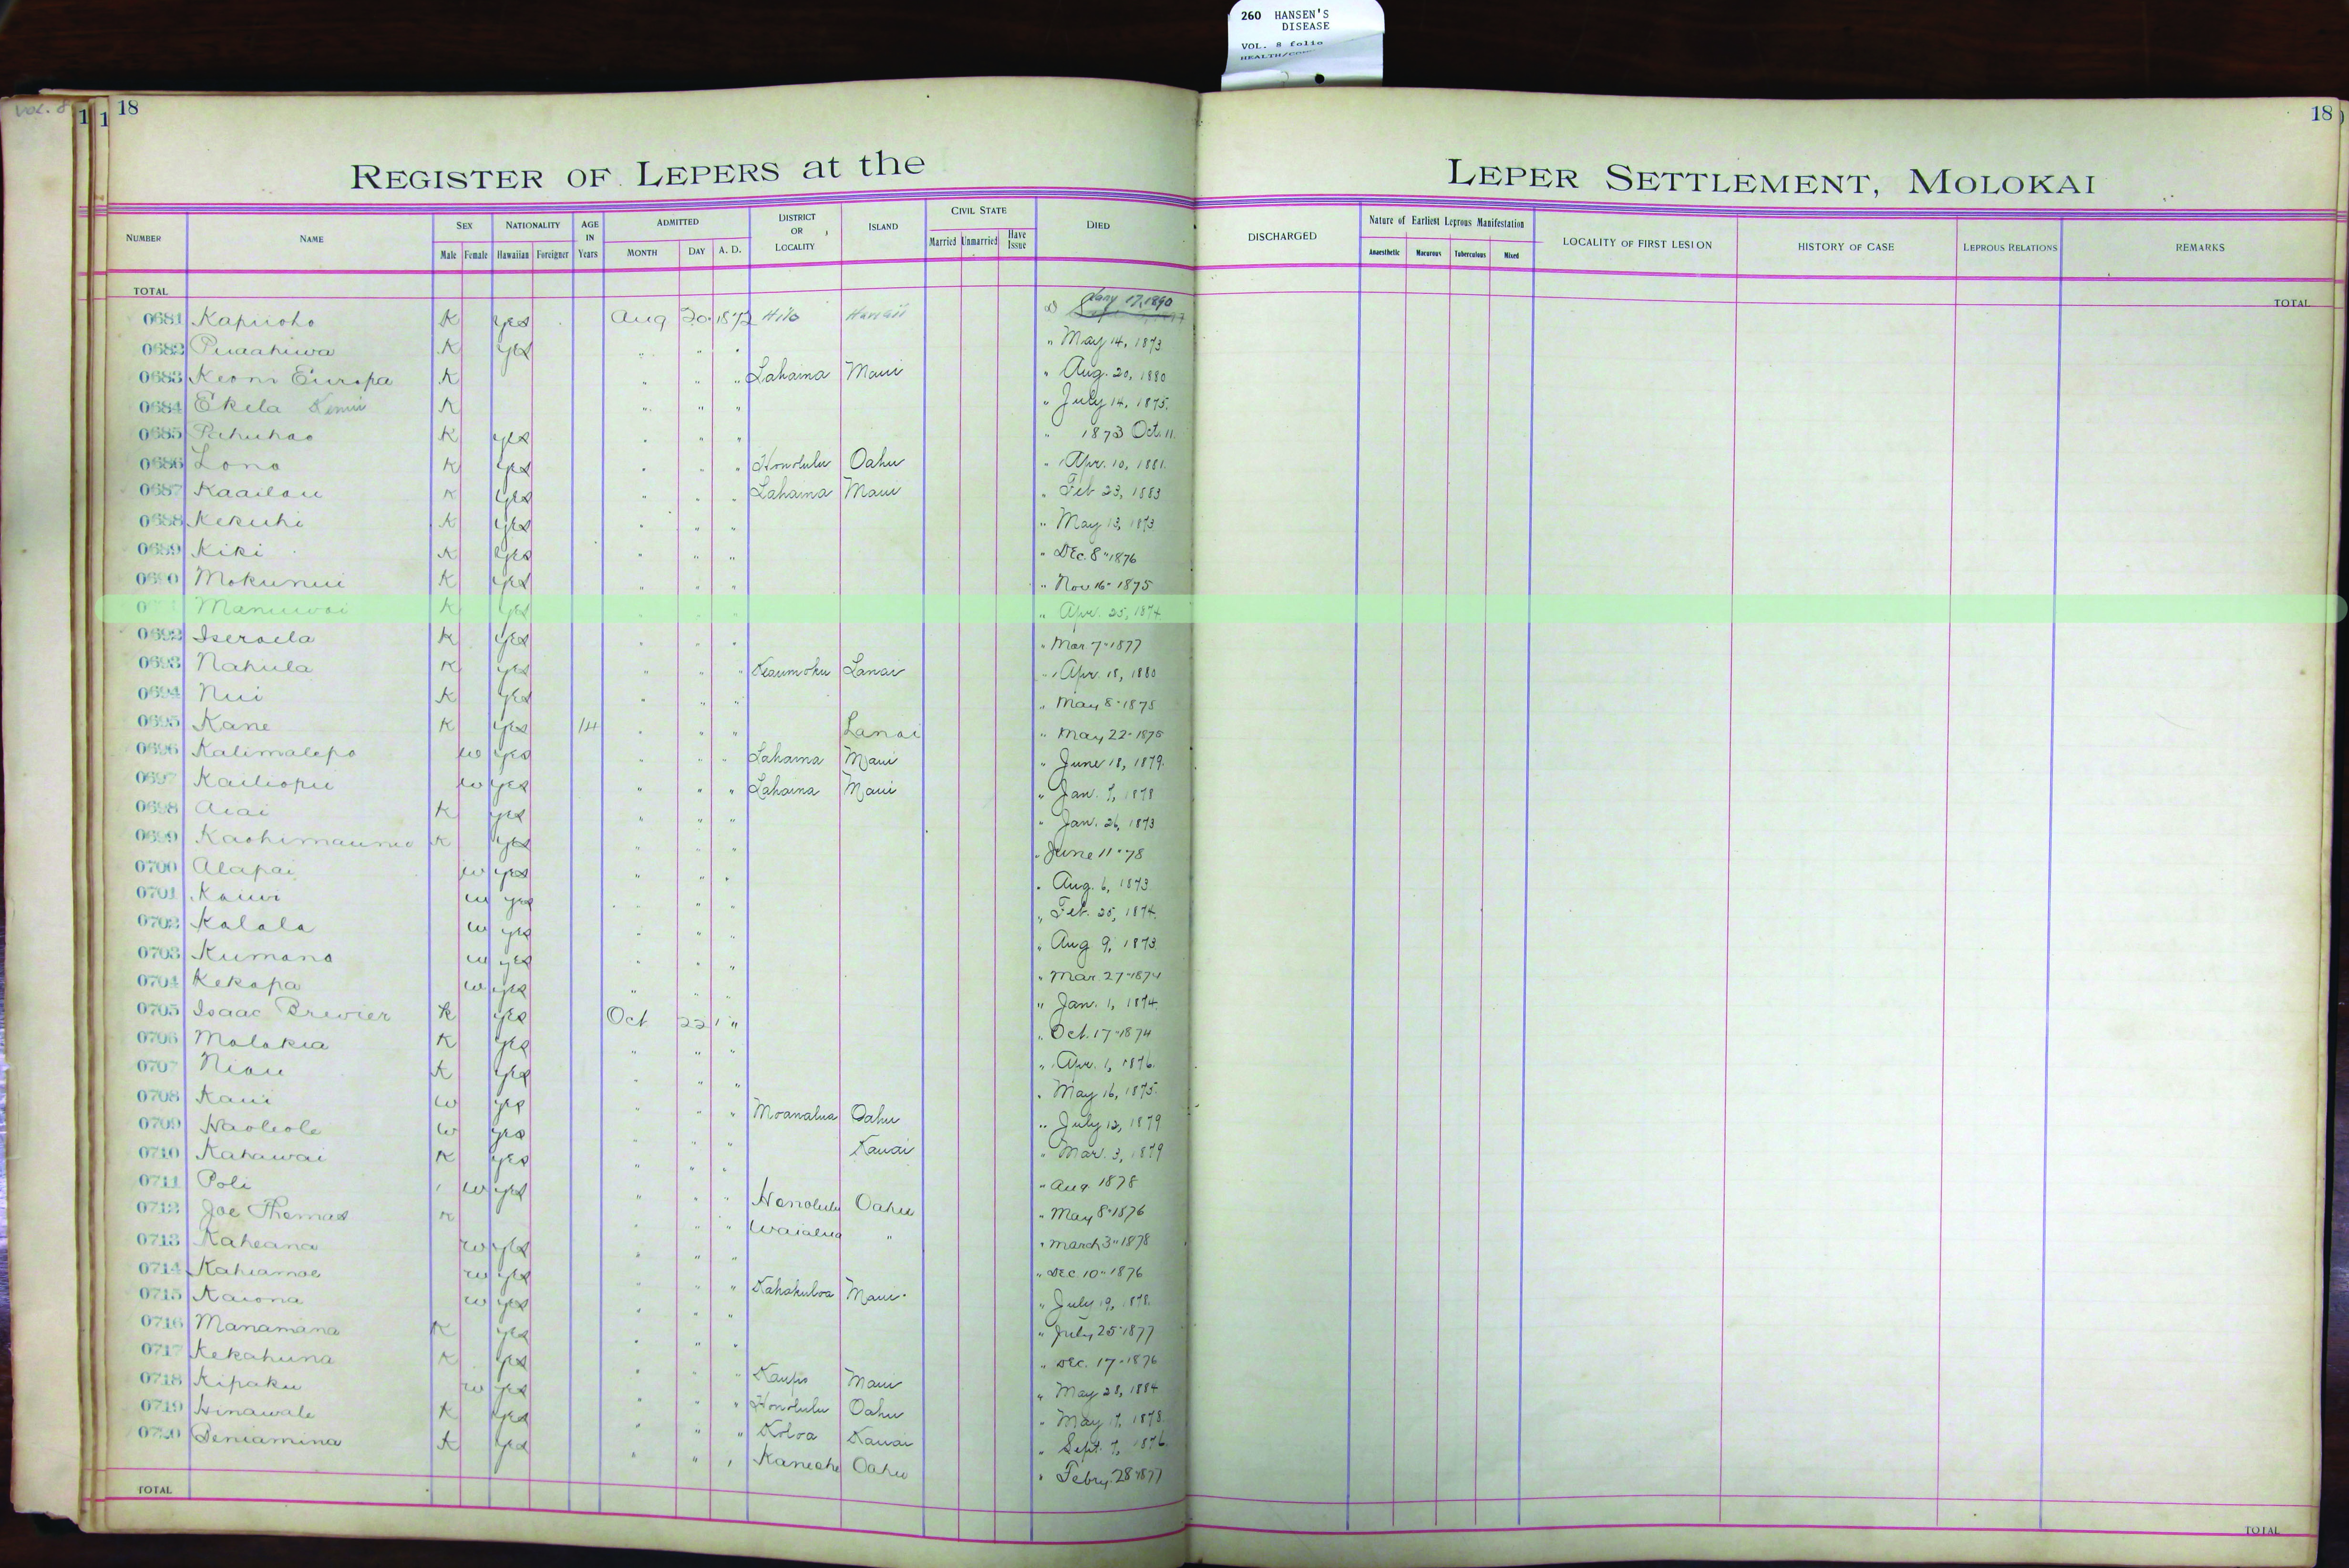 260 HANSEN'S
DISEASE
VOL. 8 folio
VOL. 8
1 1 18 18
REGISTER OF LEPERS at the LEPER SETTLEMENT, MOLOKAI
NUMBER NAME SEX Male Female NATIONALITY Hawaiian Foreigner AGE IN Years ADMITTED MONTH DAY A. D. DISTRICT OR LOCALITY ISLAND CIVIL STATE Married Unmarried Have Issue DIED DISCHARGED Nature of Earliest Leprous Manifestation Anaesthetic Tuberculous Mixed LOCALITY OF FIRST LESION HISTORY OF CASE LEPROUS RELATIONS REMARKS
TOTAL TOTAL
0681 Kapiioho K yes Aug 20 1872 Hilo Hawaii D Jany 17, 1890
0682 Puaahiwa K yes " " " " May 14, 1873
0683 Keoni Europa K " " " Lahaina Maui " Aug. 20, 1880
0684 Ekela K " " " " July 14, 1875.
0685 Pahuhao K yes " " " " 1873 Oct. 11.
0686 Lono K yes " " " Honolulu Oahu " Apr. 10, 1881.
0687 Kaailau K yes " " " Lahaina Maui " Feb 23, 1883
0688 Kekuhi K yes " " " " May 13, 1873
0689 Kiki K yes " " " " Dec. 8" 1876
0690 Mokunui K yes " " " " Nov 16" 1875
Manuwai K yes " " " " Apr. 25, 1874
0692 Iseraela K yes " " " " Mar 7" 1877
0693 Nahula K yes " " " Keaumoku Lanai " Apr. 18, 1880
0694 Nui K yes " " " " May 8" 1875
0695 Kane K yes 14 " " " Lanai " May 22" 1875
0696 Kalimalepo w yes " " " Lahaina Maui " June 18, 1879.
0697 Kailiopu w yes " " " Lahaina Maui " Jan. 7, 1878
0698 Aiai K yes " " " " Jan. 26, 1873
0699 K yes " " " " June 11" 78
0700 Alapai w yes " " " " Aug. 6, 1873
0701 Kauwi w yes " " " " Feb. 25, 1874.
0702 Kalala w yes " " " " Aug 9, 1873
0703 Kumano w yes " " " " Mar 27" 1874
0704 Kekapa w yes " " " " Jan. 1, 1874.
0705 Isaac Brewier K yes Oct 22 " " Oct. 17" 1874
0706 Molokia K yes " " " " Apr. 1, 1876.
0707 Niau K yes " " " " May 16, 1875.
0708 Kaui w yes " " " Moanalua Oahu " July 12, 1879
0709 Haoleole w yes " " " Kauai " Mar. 3, 1879
0710 Kahawai K yes " " " " Aug 1878
0711 Poli w yes " " " Honolulu Oahu " May 8" 1876
0712 Joe Thomas K " " " Waialua " " March 3" 1878
0713 Kaheana w yes " " " " Dec 10" 1876
0714 Kahiamoe w yes " " " Kahakuloa Maui " July 19, 1878.
0715 Kaiona w yes " " " " July 25" 1877
0716 Manamana K yes " " " " Dec. 17" 1876
0717 Kekahuna K yes " " " Kaupo Maui " May 28, 1884
0718 Kipaku w yes " " " Honolulu Oahu " May 17, 1878.
0719 Hinawale K yes " " " Koloa Kauai " Sept. 7, 1876.
0720 Beniamina K yes " " " Kaneohe Oahu " Febry. 28" 1877
TOTAL TOTAL